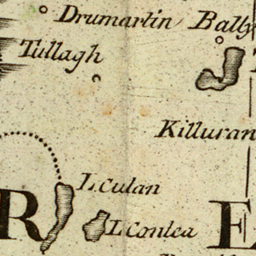 Drumartin Bally
Tullagh
Killuran
L. culan
R
L. Conlea
E